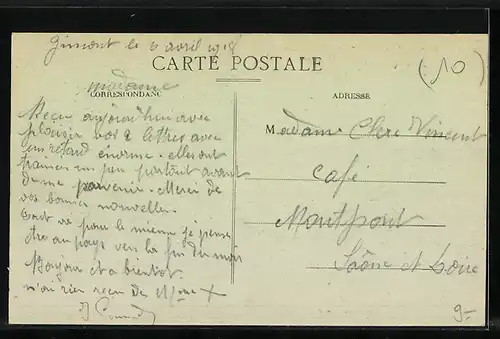 Gimont le 6 avril 1918
CARTE POSTALE
(10)
Madame
CORRESPONDANC
ADRESSE
Reçu aujourd'hui avec
plaisir vos 2 lettres avec
un retard énorme - elles ont
trainés un peu partout avant
de me parvenir. Merci de
vos bonnes nouvelles.
Tout va pour le mieux je pense
être au pays vers la fin du mois
Bonjour et a bientot.
n'ai rien reçu de
Madame Clere Vincent
Café
Montpont
Saône et Loire
9-